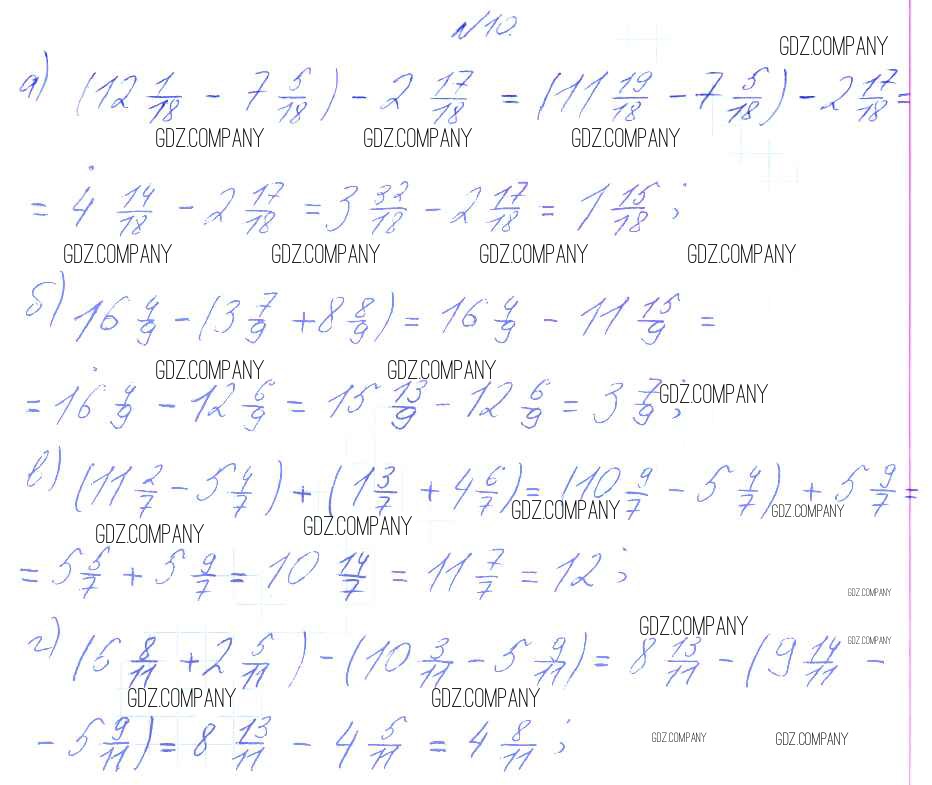 N10.
GDZ.COMPANY
а) (12 1/18 - 7 5/18) - 2 17/18 = (11 19/18 - 7 5/18) - 2 17/18 =
GDZ.COMPANY GDZ.COMPANY GDZ.COMPANY
= 4 14/18 - 2 17/18 = 3 32/18 - 2 17/18 = 1 15/18 ;
GDZ.COMPANY GDZ.COMPANY GDZ.COMPANY GDZ.COMPANY
б) 16 4/9 - (3 7/9 + 8 8/9) = 16 4/9 - 11 15/9 =
GDZ.COMPANY GDZ.COMPANY
= 16 4/9 - 12 6/9 = 15 13/9 - 12 6/9 = 3 7/9 ; GDZ.COMPANY
в) (11 2/7 - 5 4/7) + (1 3/7 + 4 6/7) = (10 9/7 - 5 4/7) + 5 9/7 =
GDZ.COMPANY GDZ.COMPANY GDZ.COMPANY GDZ.COMPANY
= 5 5/7 + 5 9/7 = 10 14/7 = 11 7/7 = 12 ;
GDZ.COMPANY
GDZ.COMPANY GDZ.COMPANY
г) (6 8/11 + 2 5/11) - (10 3/11 - 5 9/11) = 8 13/11 - (9 14/11 -
GDZ.COMPANY GDZ.COMPANY
- 5 9/11) = 8 13/11 - 4 5/11 = 4 8/11 ;
GDZ.COMPANY GDZ.COMPANY